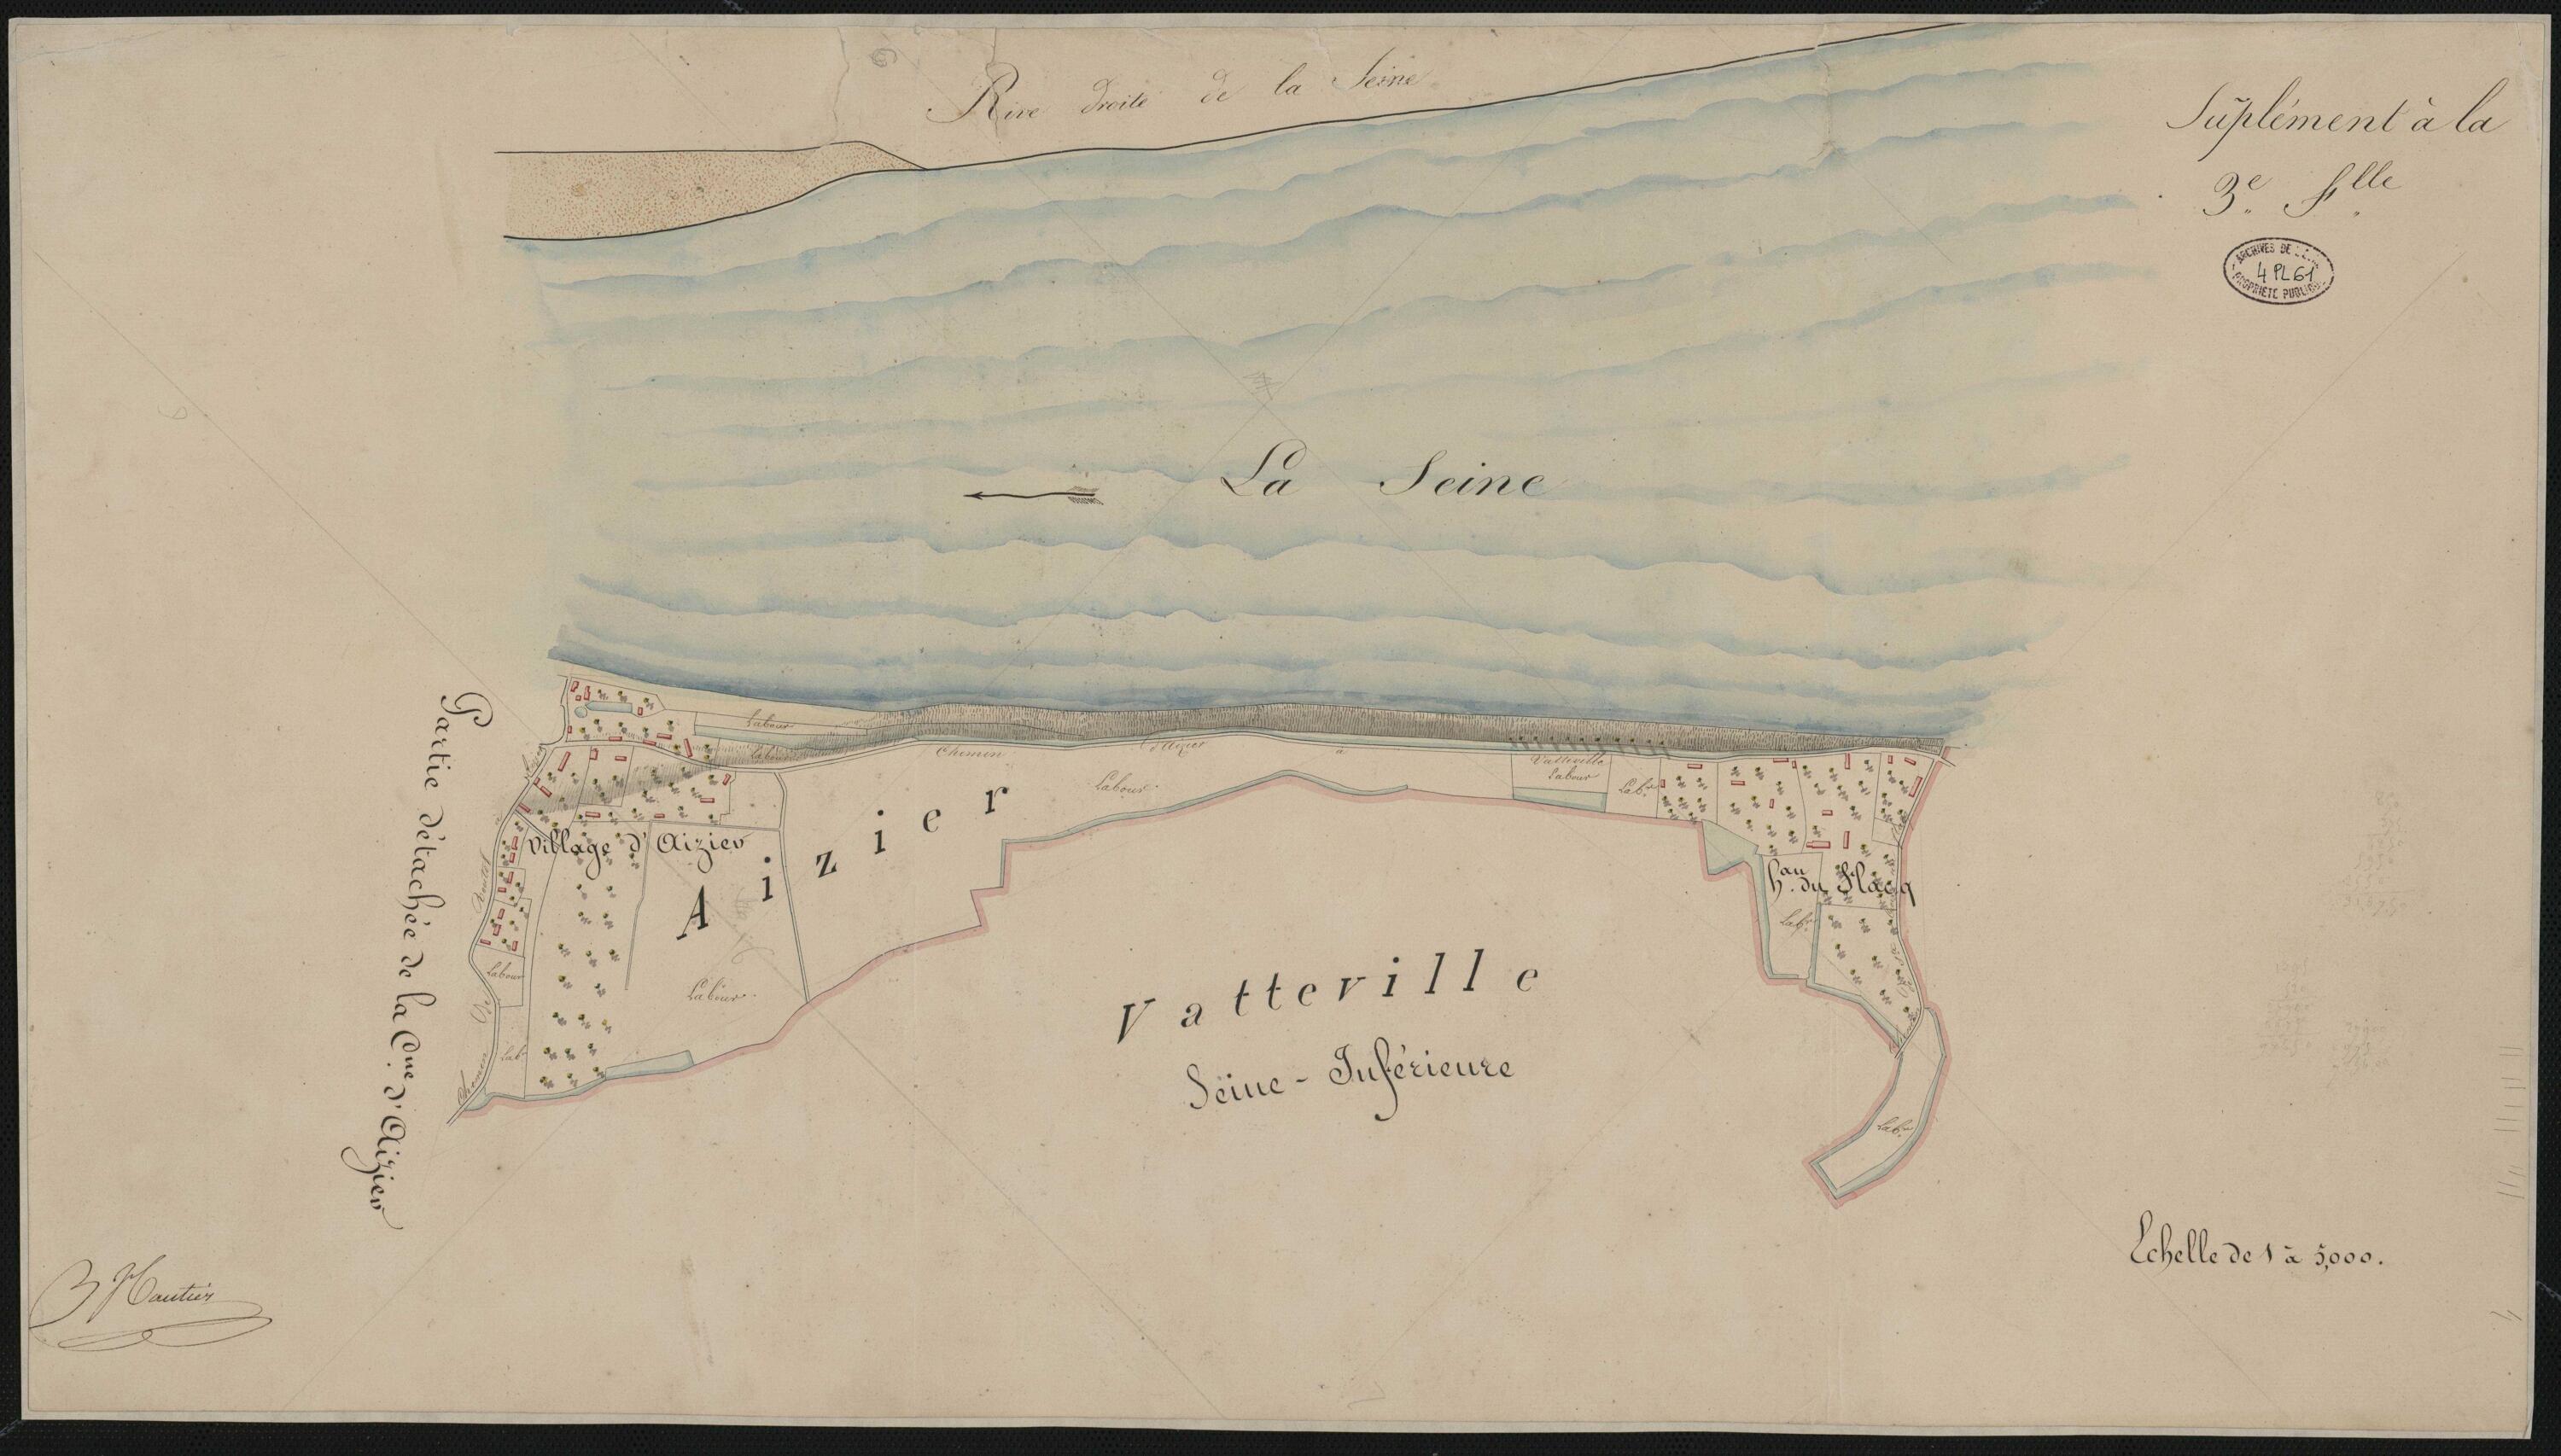 Rive droite de la Seine
Suplément à la
3.e flle
ARCHIVES DE L'EURE
4 PL 61
PROPRIÉTÉ PUBLIQUE
La Seine
Labour
Labour
Chemin d'Aizier à Vatteville
Labour
Labour
Lab.r
Village d'Aizier
Aizier
h.au du Flacq
Lab.r
Labour
Labour
Lab.r
Chemin de
Partie détachée de la C.ne d'Aizier
Vatteville
Seine-Inférieure
Lab.r
Echelle de 1 à 5,000.
Hautier